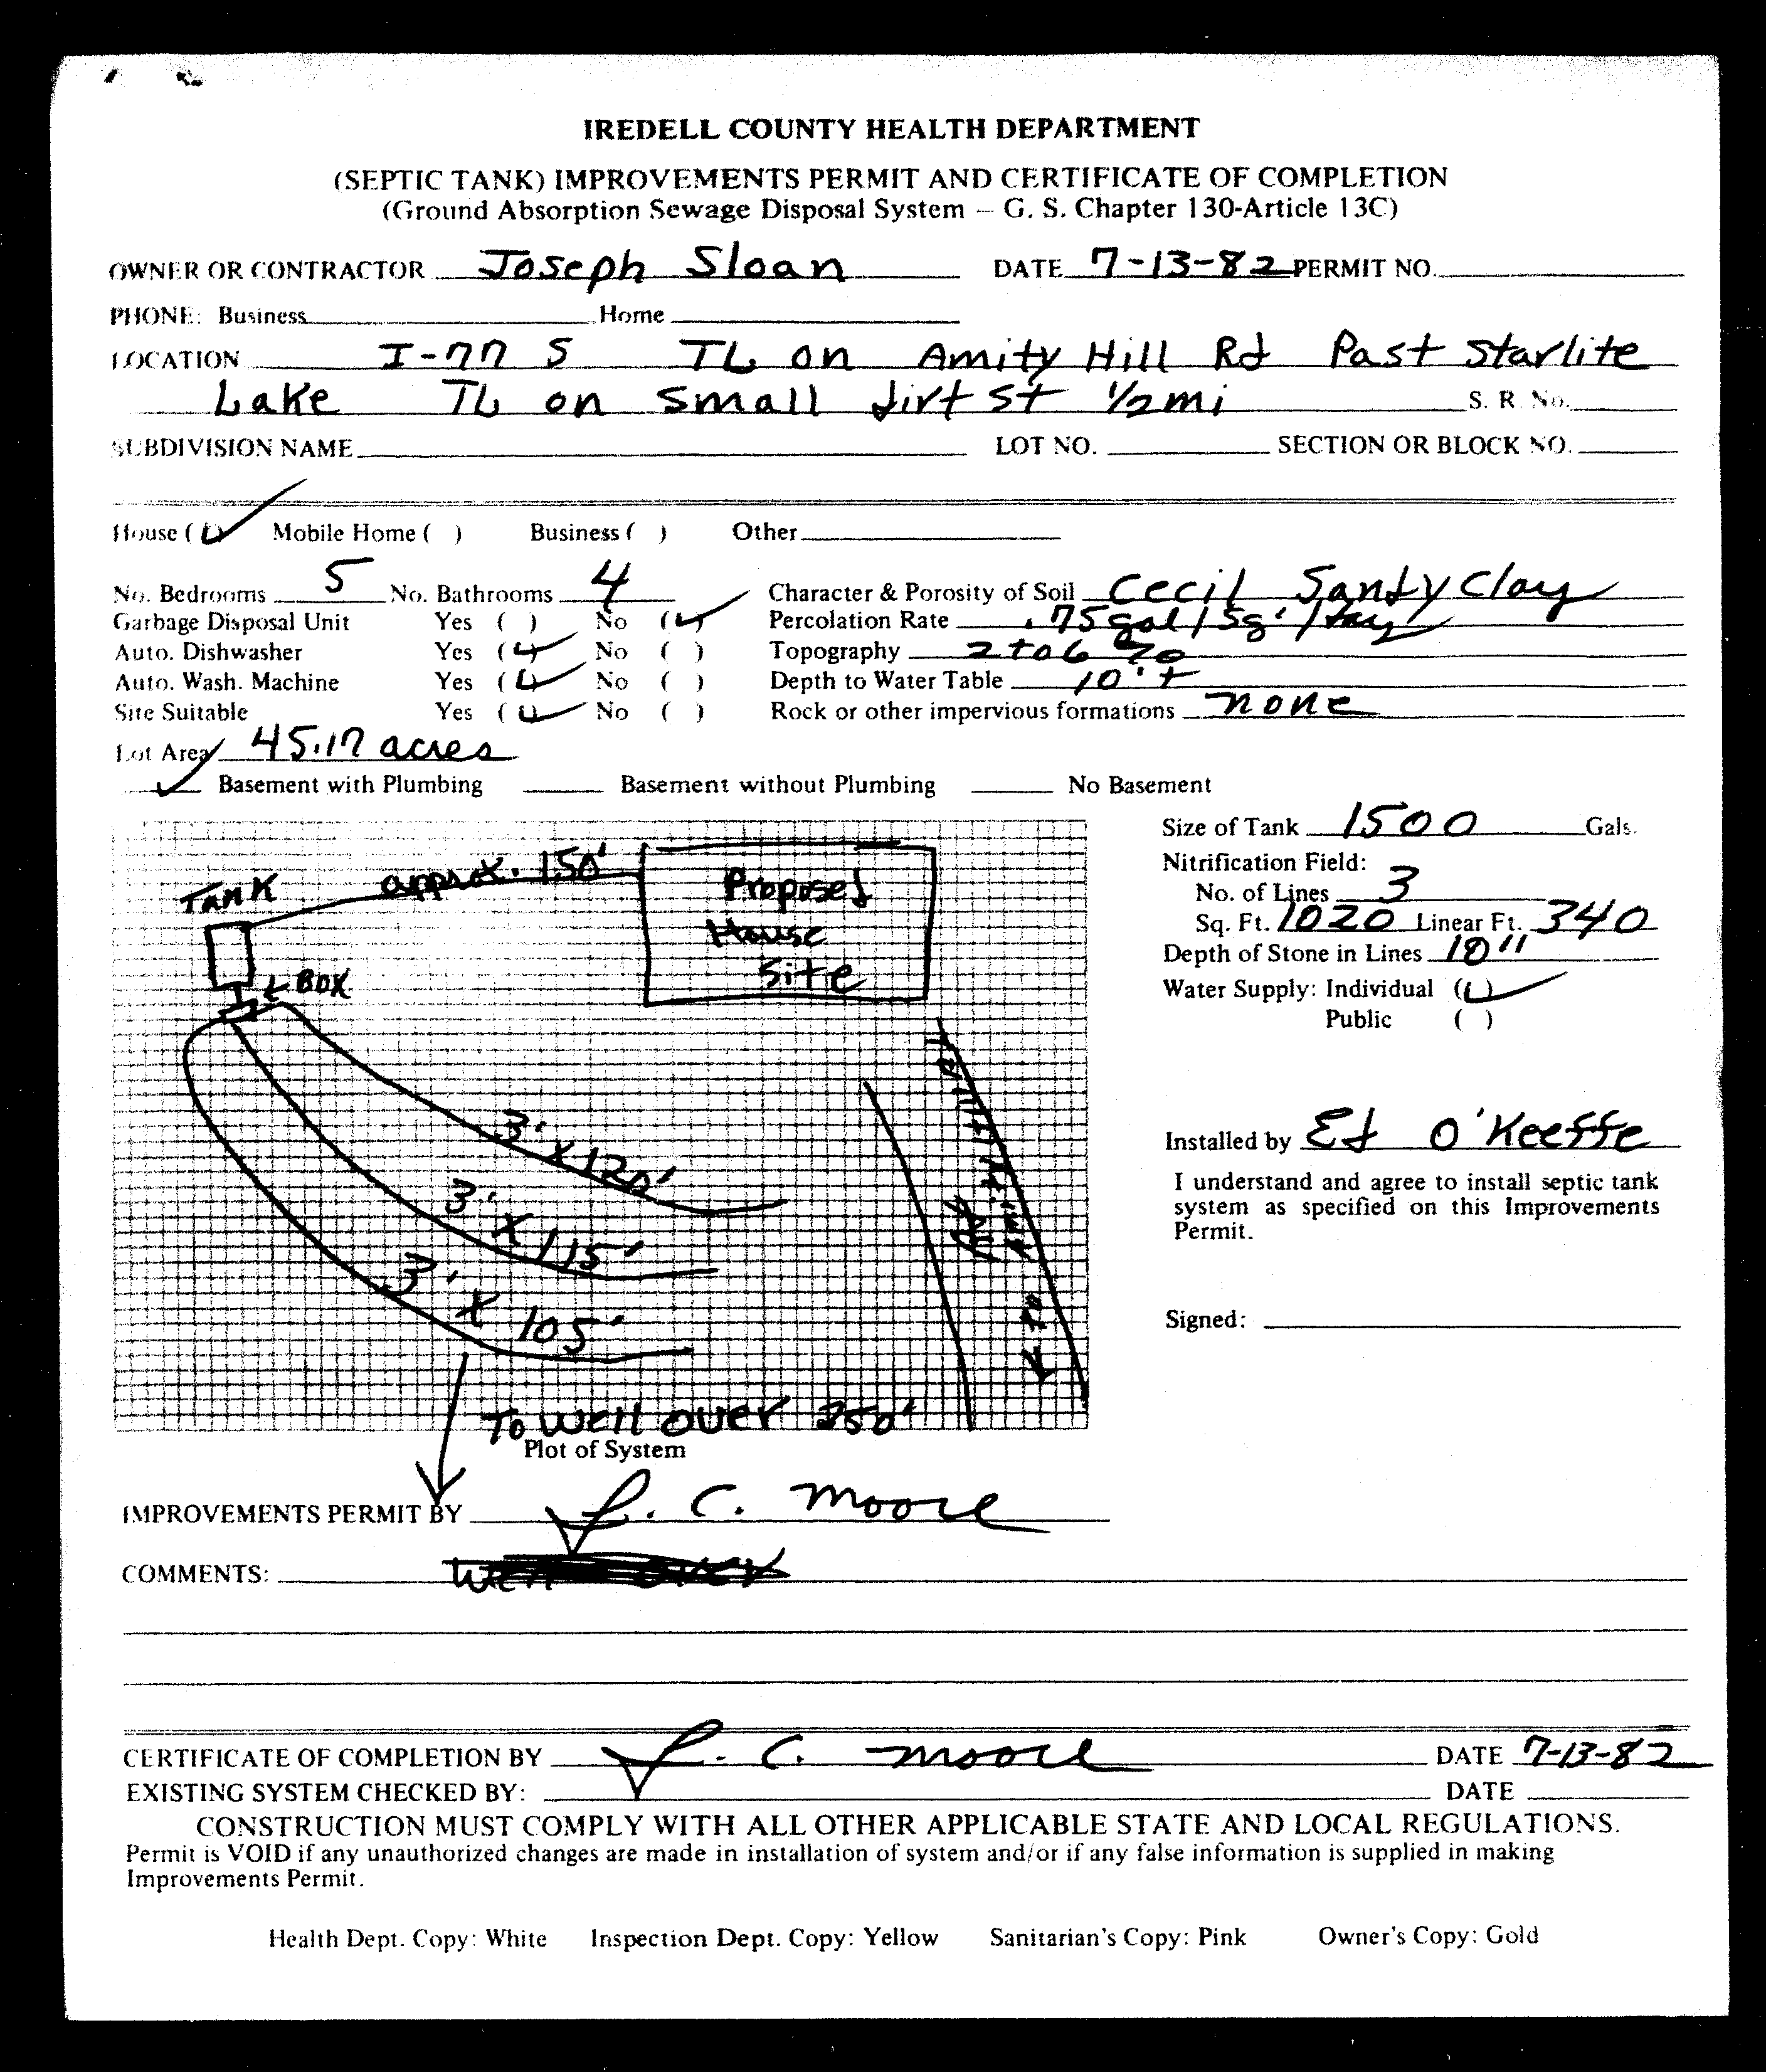 IREDELL COUNTY HEALTH DEPARTMENT
(SEPTIC TANK) IMPROVEMENTS PERMIT AND CERTIFICATE OF COMPLETION
(Ground Absorption Sewage Disposal System – G. S. Chapter 130-Article 13C)
OWNER OR CONTRACTOR Joseph Sloan DATE 7-13-82 PERMIT NO.
PHONE: Business Home
LOCATION I-77 S TL on Amity Hill Rd Past Starlite
Lake TL on small dirt St 1/2 mi S. R. No.
SUBDIVISION NAME LOT NO. SECTION OR BLOCK NO.
House (✓) Mobile Home ( ) Business ( ) Other
No. Bedrooms 5 No. Bathrooms 4 Character & Porosity of Soil Cecil Sandy Clay
Garbage Disposal Unit Yes ( ) No (✓) Percolation Rate .75 gal/sq'/day
Auto. Dishwasher Yes (✓) No ( ) Topography 2 to 6 %
Auto. Wash. Machine Yes (✓) No ( ) Depth to Water Table 10'+
Site Suitable Yes (✓) No ( ) Rock or other impervious formations none
Lot Area 45.17 acres
✓ Basement with Plumbing Basement without Plumbing No Basement
Size of Tank 1500 Gals.
Nitrification Field:
No. of Lines 3
Sq. Ft. 1020 Linear Ft. 340
Depth of Stone in Lines 10"
Water Supply: Individual (✓)
Public ( )
Installed by Ed O'Keeffe
I understand and agree to install septic tank
system as specified on this Improvements
Permit.
Signed:
TANK
approx. 150'
Proposed
House
Site
← BOX
3' x 120'
3' x 115'
3' x 105'
To Well over 350'
Plot of System
IMPROVEMENTS PERMIT BY J. C. Moore
COMMENTS:
CERTIFICATE OF COMPLETION BY J. C. Moore DATE 7-13-82
EXISTING SYSTEM CHECKED BY: DATE
CONSTRUCTION MUST COMPLY WITH ALL OTHER APPLICABLE STATE AND LOCAL REGULATIONS.
Permit is VOID if any unauthorized changes are made in installation of system and/or if any false information is supplied in making
Improvements Permit.
Health Dept. Copy: White Inspection Dept. Copy: Yellow Sanitarian's Copy: Pink Owner's Copy: Gold